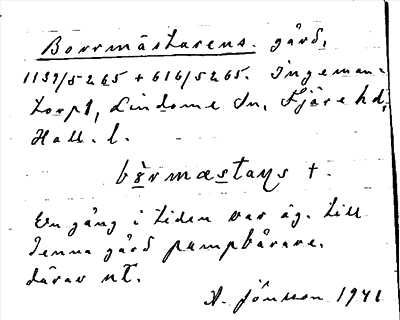 Borrmästarens. gård,
1139/5265 + 616/5265. Ingeman-
torp1, Lindome sn, Fjäre hd,
Hall. l.
bòrmæstans t.
En gång i tiden var äg. till
denna gård pumpbårare.
därav nt.
A. Jönsson 1941